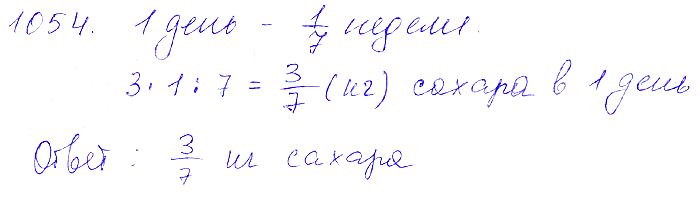 1054. 1 день - 1/7 недели.
3 · 1 : 7 = 3/7 (кг) сахара в 1 день
Ответ : 3/7 кг сахара